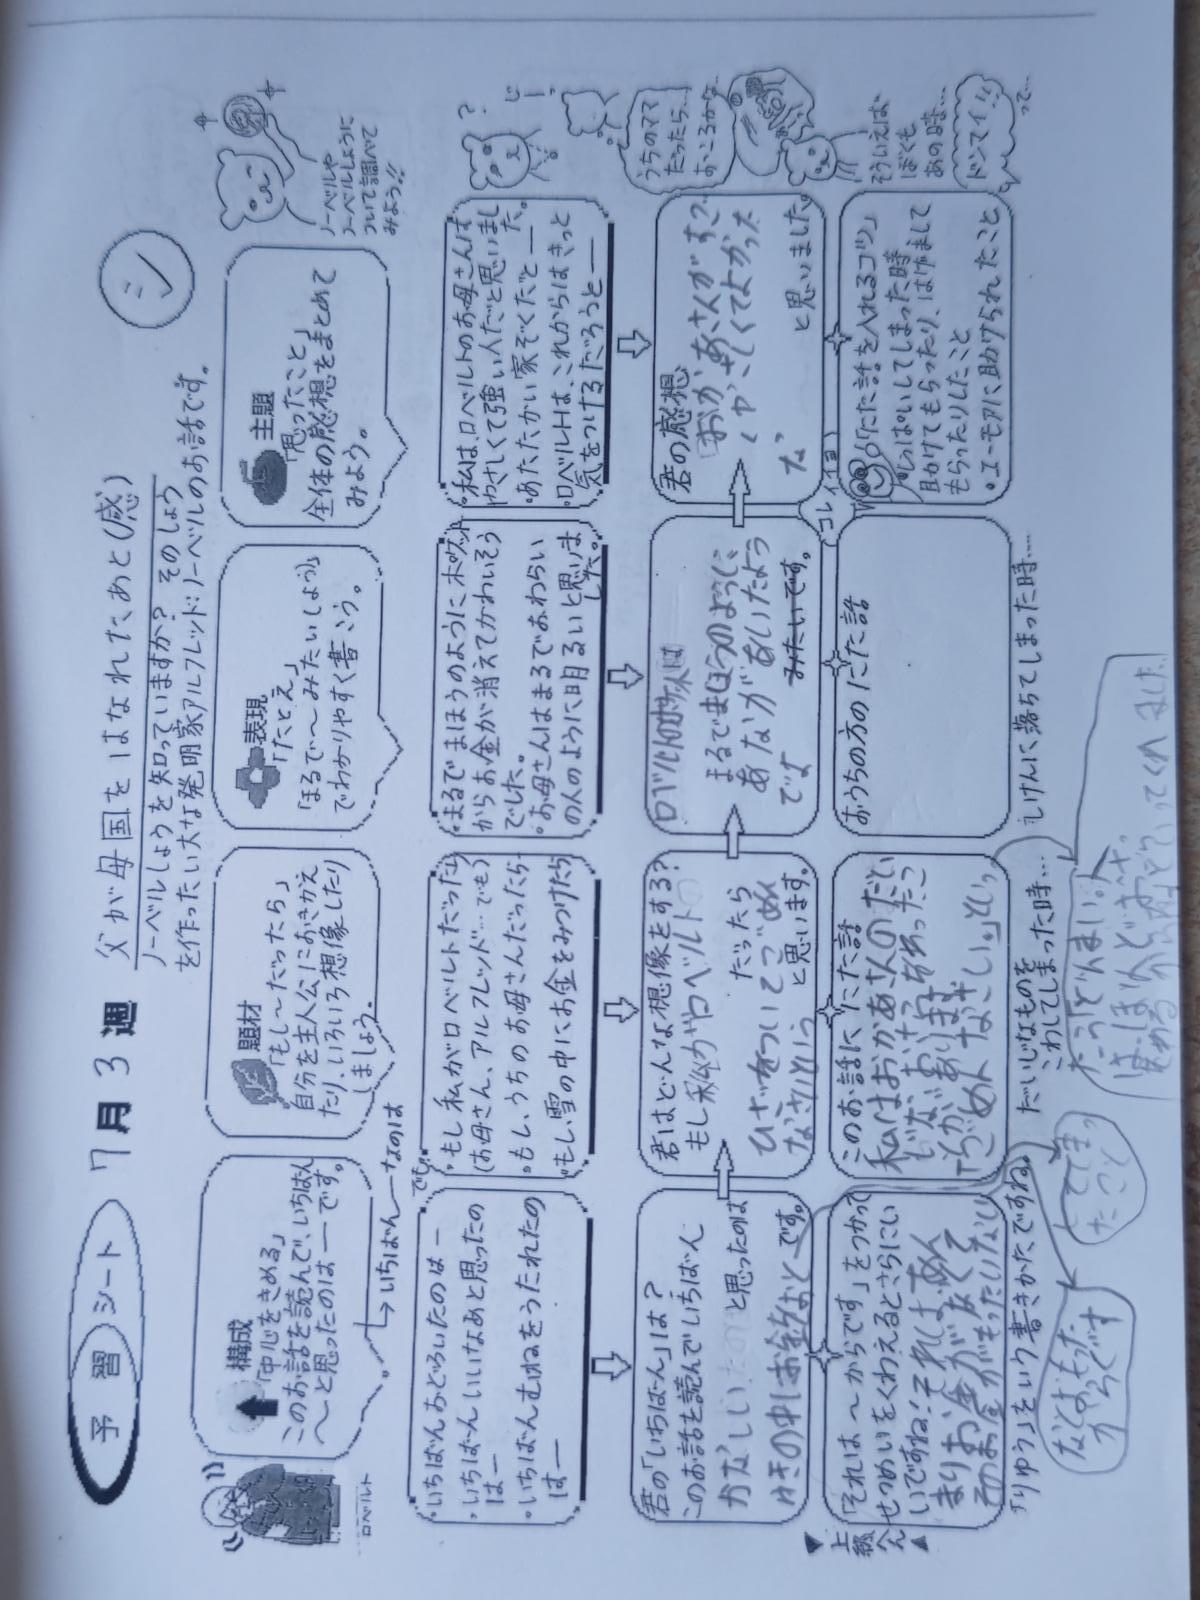 予習シート 7月3週 父が母国をはなれたあと(感) シ
ノーベルしょうを知っていますか? そのしょう
を作ったい大な発明家アルフレッド:ノーベルのお話です。
ロベルト
構成
「中心をきめる」
このお話を読んで、いちばん
〜と思ったのは ― です。
→いちばん―なのは
題材
「もし〜だったら」
自分を主人公におきかえ
たり、いろいろ想像したり
しましょう。
でも。
表現
「たとえ」
「まるで〜みたい(ように)」
でわかりやすく書こう。
主題
「思ったこと」
全体の感想をまとめて
みよう。
ノーベルや
ノーベルしょうに
ついて調べて
みよう!!
・いちばんおどろいたのは ―
・いちばんいいなあと思ったの
は―
・いちばんむねをうたれたの
は―
・もし私がロベルトだったら
(お母さん、アルフレッド…でも)
・もし、うちのお母さんだったら
・もし、雪の中にお金をみつけたら
・まるでまほうのようにポケット
からお金が消えてかわいそう
でした。
・お母さんはまるでおわらい
の人のように明るいと思いま
した。
・私は、ロベルトのお母さんは
やさしくて強い人だと思いまし
た。
・あたたかい家ぞくだと―
・ロベルトは、これからはきっと
気をつけるだろうと―
君の「いちばん」は?
このお話を読んでいちばん
かなしいたの と思ったのは
ゆきの中しお金をおと です。
君はどんな想像をする?
もし私がロベルトの
だったら
ひざをついてごめん
なさいという と思います。
ロベルトのポケットは
まるでまほうのように
あながあいたよう
です みたいです。
君の感想
おかあさんがすご
くやさしくてよかった
な と思いました。
うちのママ
だったら…
おこるかな…
▼上級へん▲
「それは〜からです」をつかって
せつめいをくわえるとさらにい
いですね。それはあん
まりお金がなくて
そのお金がもったいない
「りゆう」をという書きかたですね。
なくおもった
からです
このお話ににた話
私はおかあさんのだい
じなおけしょうをおとしたこ
とがあります
「ごめんなさい。」といっ
てしまっ
たこと
だいじなものを
こわしてしまった時…
おうちの方のにた話
しけんに落ちてしまった時……
コレイイヨ
〈にた話を入れるコツ〉
・しっぱいしてしまった時
助けてもらったり、はげまして
もらったりしたこと
・ユーモアに助けられたこと
そういえば
ぼくも
あの時…
ドンマイ!!
って…